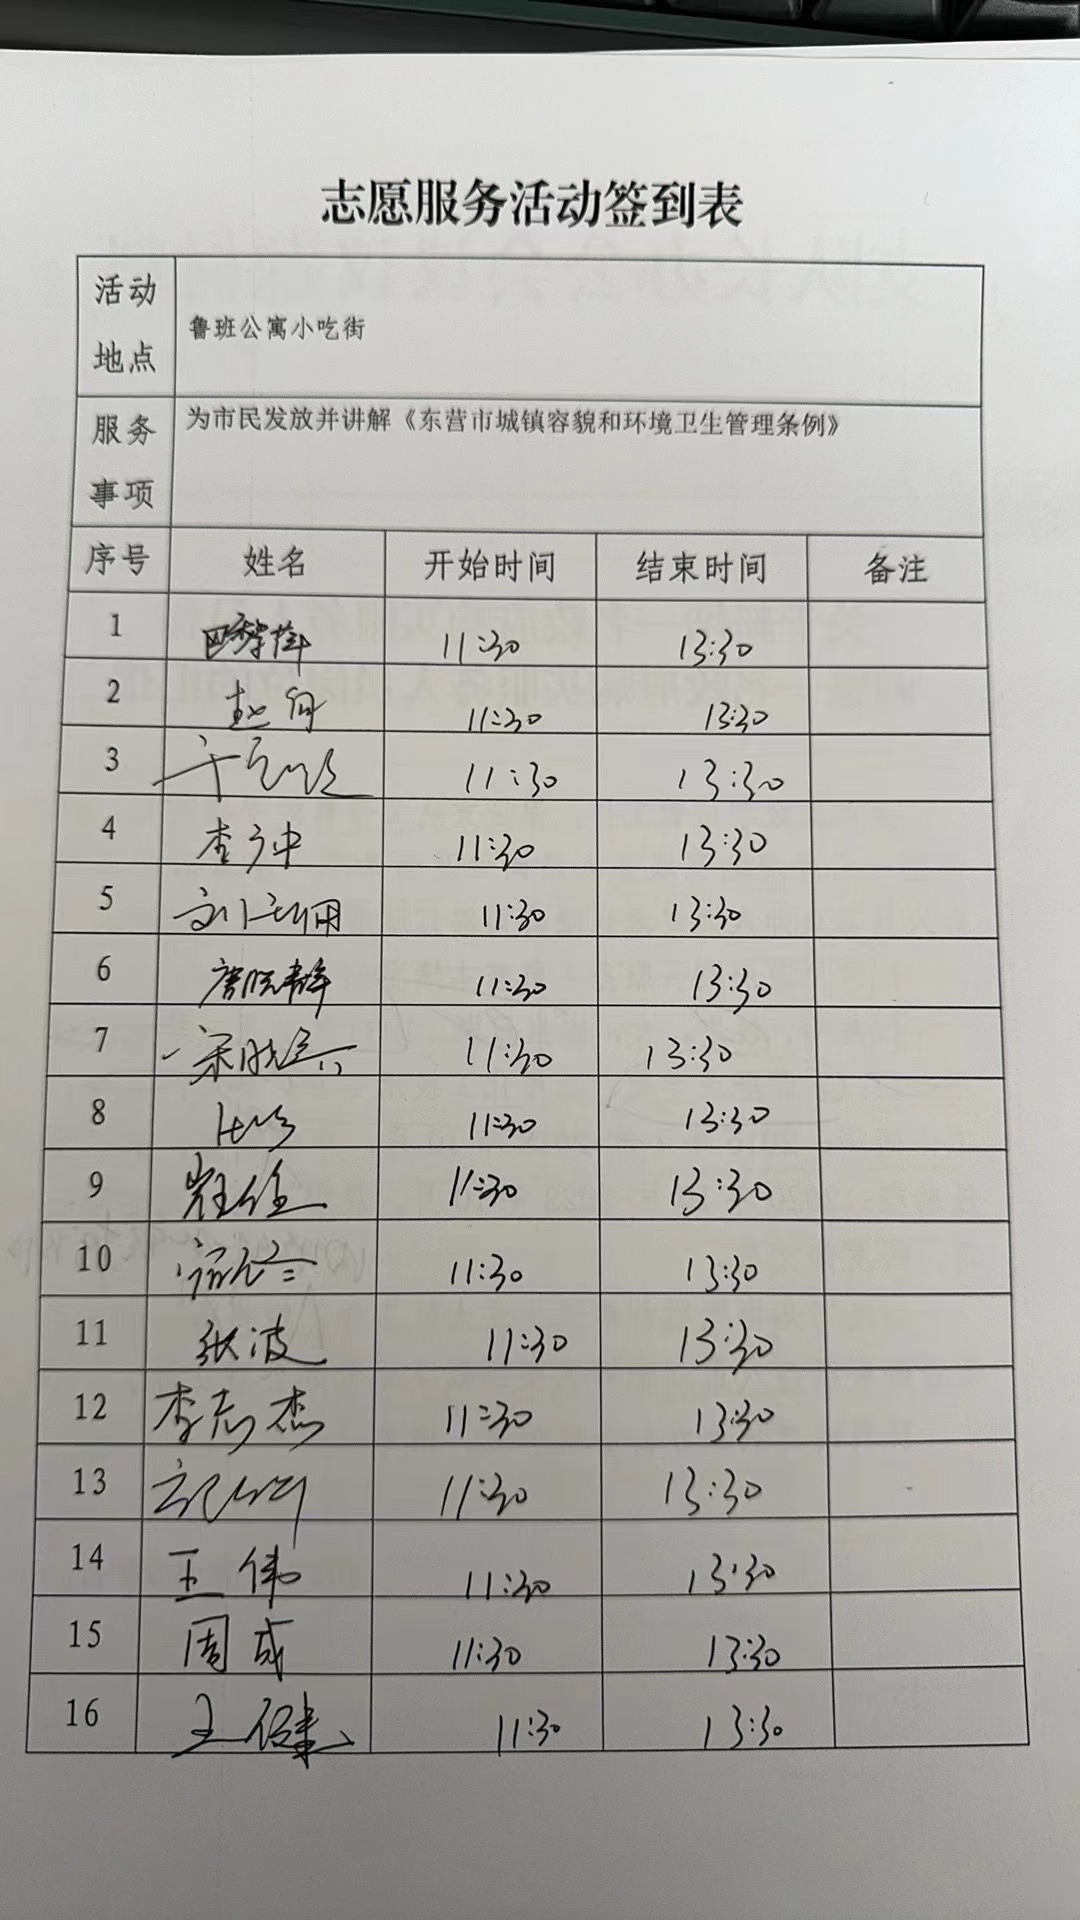 志愿服务活动签到表
活动地点 鲁班公寓小吃街
服务事项 为市民发放并讲解《东营市城镇容貌和环境卫生管理条例》
序号 姓名 开始时间 结束时间 备注
1 11:30 13:30
2 赵 11:30 13:30
3 11:30 13:30
4 李 11:30 13:30
5 刘 11:30 13:30
6 唐 11:30 13:30
7 宋 11:30 13:30
8 11:30 13:30
9 11:30 13:30
10 11:30 13:30
11 张波 11:30 13:30
12 李志杰 11:30 13:30
13 11:30 13:30
14 王伟 11:30 13:30
15 周成 11:30 13:30
16 王 11:30 13:30